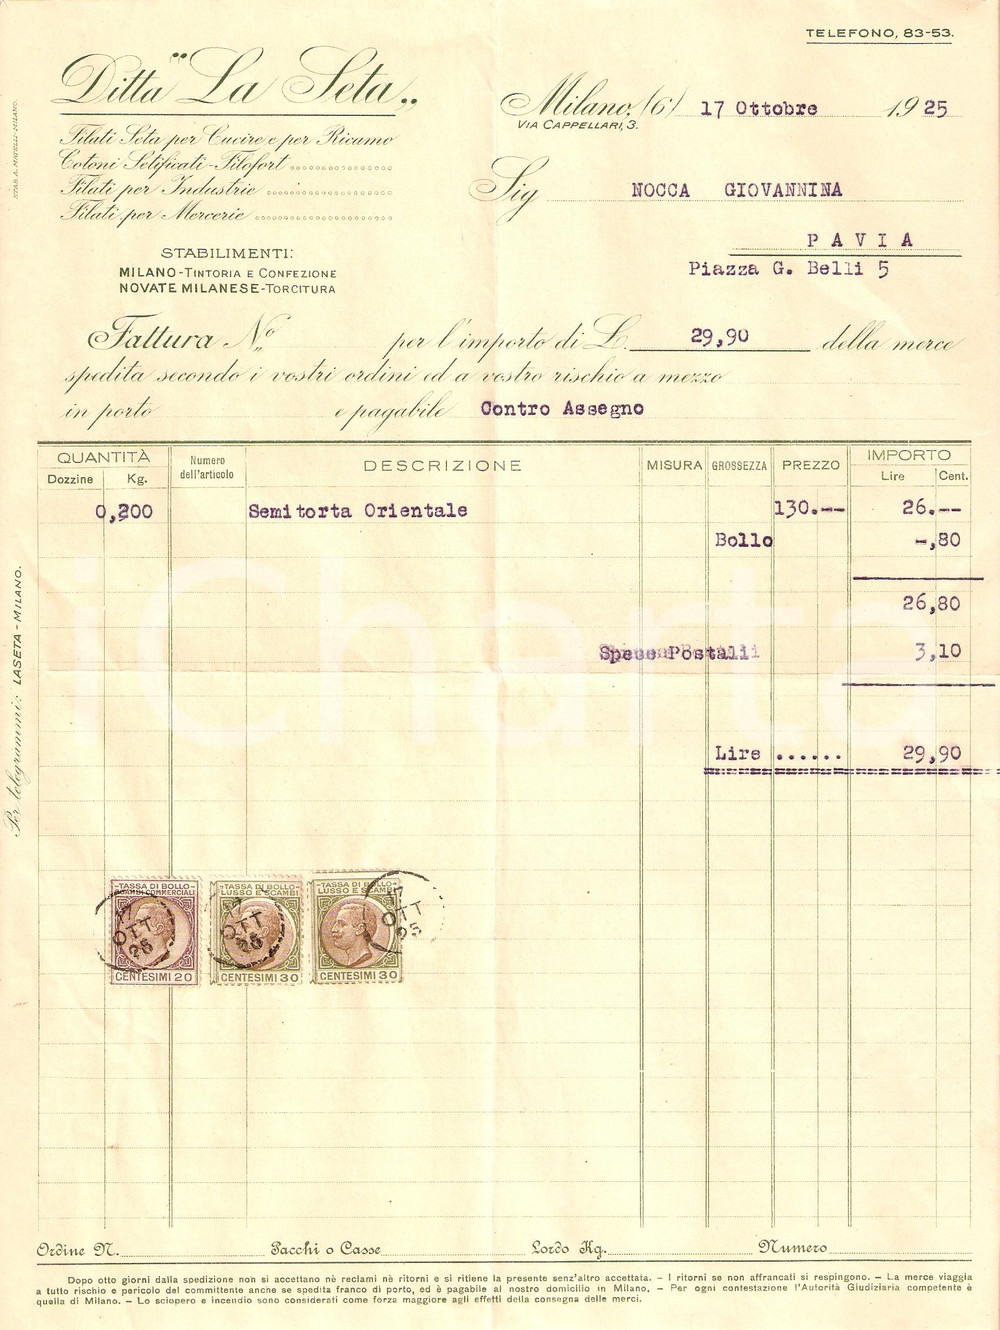 TELEFONO, 83-53.
Ditta "La Seta"
Filati Seta per Cucire e per Ricamo
Cotoni Setificati - Filofort
Filati per Industrie
Filati per Mercerie
STABILIMENTI:
MILANO - TINTORIA E CONFEZIONE
NOVATE MILANESE - TORCITURA
Milano, (6) 17 Ottobre 1925
VIA CAPPELLARI, 3.
Sig NOCCA GIOVANNINA
PAVIA
Piazza G. Belli 5
Fattura No per l'importo di L. 29,90 della merce
spedita secondo i vostri ordini ed a vostro rischio a mezzo
in porto e pagabile Contro Assegno
QUANTITÀ
Dozzine Kg.
Numero dell'articolo
DESCRIZIONE
MISURA
GROSSEZZA
PREZZO
IMPORTO
Lire Cent.
0,200 Semitorta Orientale 130.-- 26.--
Bollo -,80
26,80
Spese Postali 3,10
Lire ...... 29,90
iCharta
TASSA DI BOLLO
SCAMBI COMMERCIALI
CENTESIMI 20
17 OTT 25
TASSA DI BOLLO
LUSSO E SCAMBI
CENTESIMI 30
17 OTT 25
TASSA DI BOLLO
LUSSO E SCAMBI
CENTESIMI 30
17 OTT 25
Per telegrammi: LASETA - MILANO.
Ordine N. Pacchi o Casse Lordo Kg. Numero
Dopo otto giorni dalla spedizione non si accettano nè reclami nè ritorni e si ritiene la presente senz'altro accettata. – I ritorni se non affrancati si respingono. – La merce viaggia
a tutto rischio e pericolo del committente anche se spedita franco di porto, ed è pagabile al nostro domicilio in Milano. – Per ogni contestazione l'Autorità Giudiziaria competente è
quella di Milano. – Lo sciopero e incendio sono considerati come forza maggiore agli effetti della consegna delle merci.